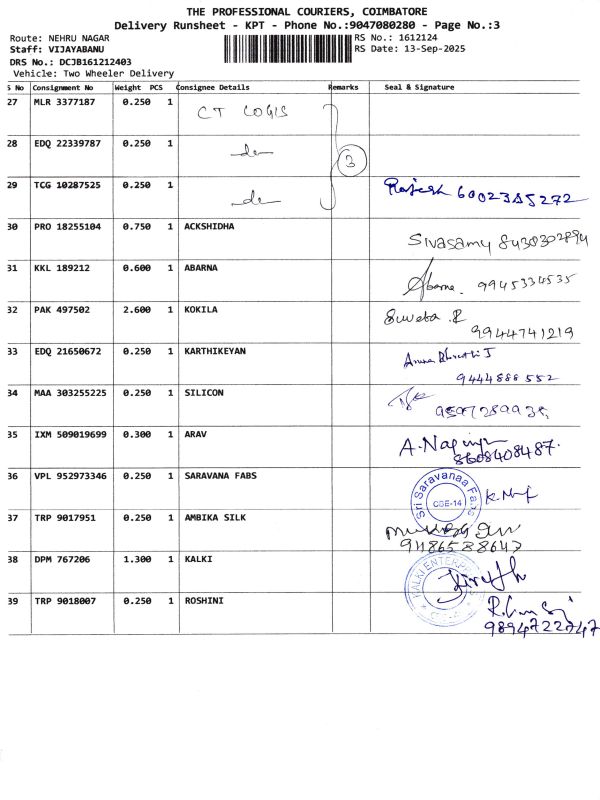 THE PROFESSIONAL COURIERS, COIMBATORE
Delivery Runsheet - KPT - Phone No.:9047080280 - Page No.:3
Route: NEHRU NAGAR RS No.: 1612124
Staff: VIJAYABANU RS Date: 13-Sep-2025
DRS No.: DCJB161212403
Vehicle: Two Wheeler Delivery
S No Consignment No Weight PCS Consignee Details Remarks Seal & Signature
27 MLR 3377187 0.250 1 CT LOGIS
28 EDQ 22339787 0.250 1 do 3
29 TCG 10287525 0.250 1 do Rajesh 6002385272
30 PRO 18255104 0.750 1 ACKSHIDHA
Sivasamy 8430302894
31 KKL 189212 0.600 1 ABARNA Abarna. 9945334535
32 PAK 497502 2.600 1 KOKILA Suveta .R
9944741219
33 EDQ 21650672 0.250 1 KARTHIKEYAN
9444888552
34 MAA 303255225 0.250 1 SILICON
35 IXM 509019699 0.300 1 ARAV A.
8608408487.
36 VPL 952973346 0.250 1 SARAVANA FABS Sri Saravanaa Fabs CBE-14
37 TRP 9017951 0.250 1 AMBIKA SILK
38 DPM 767206 1.300 1 KALKI KALKI ENTERPRISES
39 TRP 9018007 0.250 1 ROSHINI
9894722747